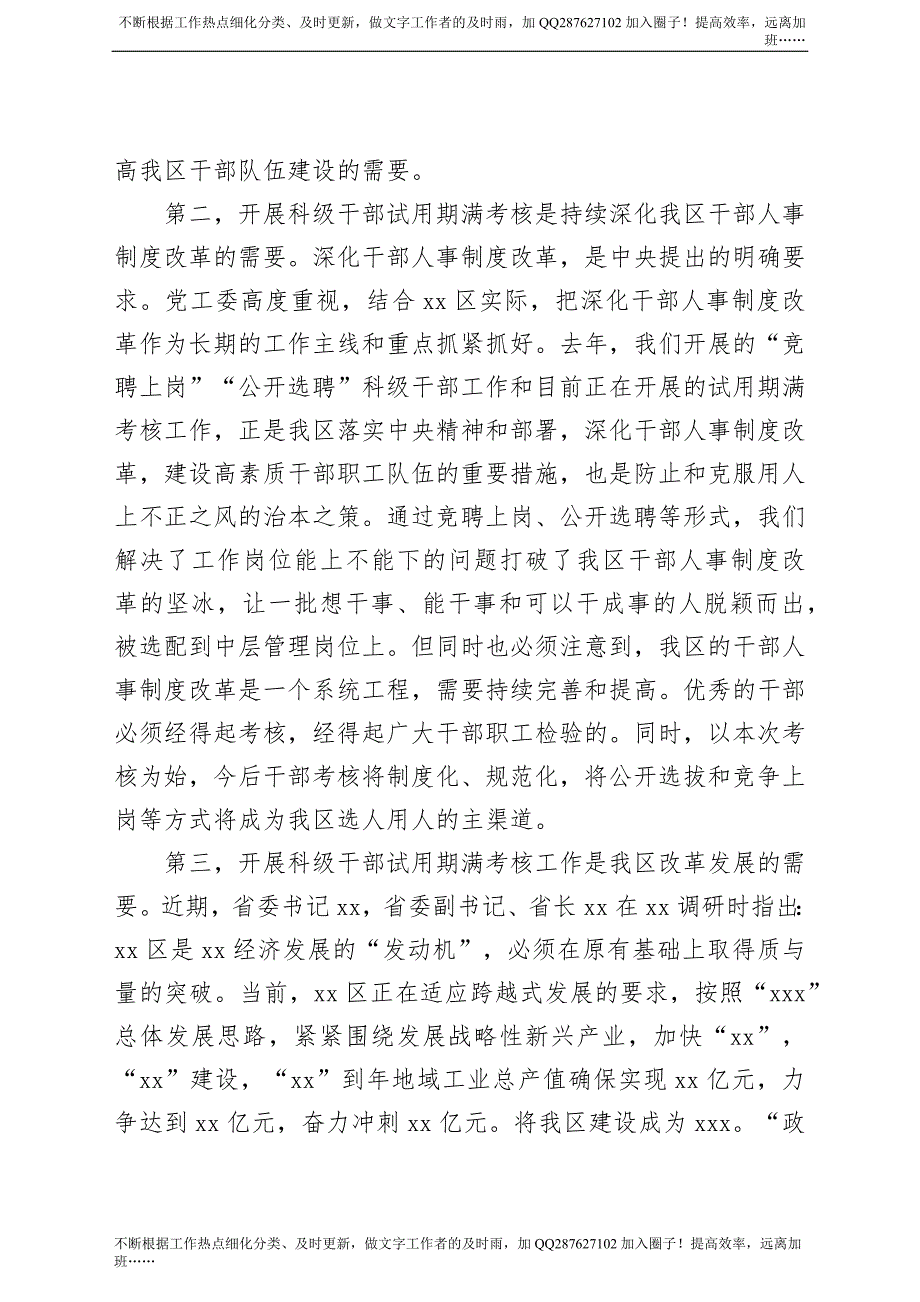 不断根据工作热点细化分类、及时更新，做文字工作者的及时雨，加 QQ287627102 加入圈子！提高效率，远离加
班……
高我区干部队伍建设的需要。
第二，开展科级干部试用期满考核是持续深化我区干部人事
制度改革的需要。深化干部人事制度改革，是中央提出的明确要
求。党工委高度重视，结合 xx 区实际，把深化干部人事制度改
革作为长期的工作主线和重点抓紧抓好。去年，我们开展的“竞
聘上岗”“公开选聘”科级干部工作和目前正在开展的试用期满
考核工作，正是我区落实中央精神和部署，深化干部人事制度改
革，建设高素质干部职工队伍的重要措施，也是防止和克服用人
上不正之风的治本之策。通过竞聘上岗、公开选聘等形式，我们
解决了工作岗位能上不能下的问题打破了我区干部人事制度改
革的坚冰，让一批想干事、能干事和可以干成事的人脱颖而出，
被选配到中层管理岗位上。但同时也必须注意到，我区的干部人
事制度改革是一个系统工程，需要持续完善和提高。优秀的干部
必须经得起考核，经得起广大干部职工检验的。同时，以本次考
核为始，今后干部考核将制度化、规范化，将公开选拔和竞争上
岗等方式将成为我区选人用人的主渠道。
第三，开展科级干部试用期满考核工作是我区改革发展的需
要。近期，省委书记 xx，省委副书记、省长 xx 在 xx 调研时指出：
xx 区是 xx 经济发展的“发动机”，必须在原有基础上取得质与
量的突破。当前，xx 区正在适应跨越式发展的要求，按照“xxx”
总体发展思路，紧紧围绕发展战略性新兴产业，加快“xx”，
“xx”建设，“xx”到年地域工业总产值确保实现 xx 亿元，力
争达到 xx 亿元，奋力冲刺 xx 亿元。将我区建设成为 xxx。“政
不断根据工作热点细化分类、及时更新，做文字工作者的及时雨，加 QQ287627102 加入圈子！提高效率，远离加
班……